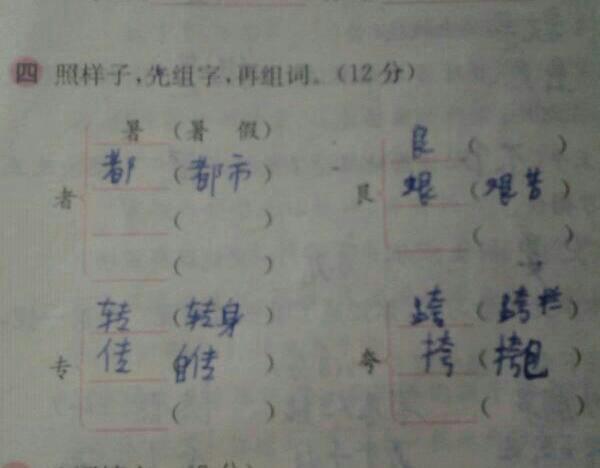 四 照样子,先组字,再组词。(12分)
者
暑 (暑 假)
都 (都市)
( )
( )
艮
良 ( )
艰 (艰苦)
( )
专
转 (转身)
传 自传 )
( )
夸
跨 (跨栏)
挎 (挎包 )
( )